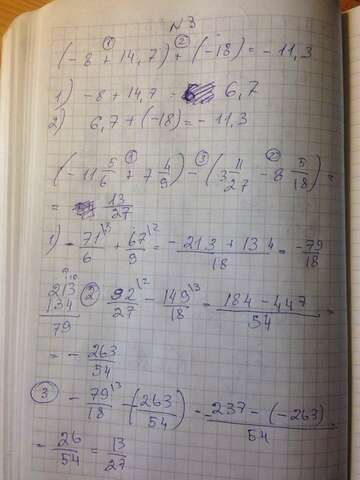 №3
(-8 + 14,7) + (-18) = -11,3
1) -8 + 14,7 = 6,7
2) 6,7 + (-18) = -11,3
(-11 5/6 + 7 4/9) - (3 11/27 - 8 5/18) =
= 13/27
1) -71/6 + 67/9 = -213 + 134/18 = -79/18
213
134
79
② 92/27 - 149/18 = 184 - 447/54 =
= - 263/54
③ - 79/18 - (263/54) - -237 - (-263)/54
= 26/54 = 13/27